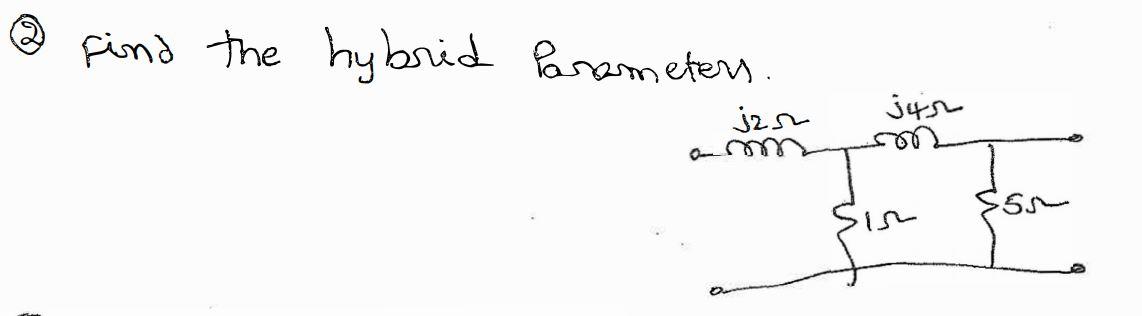 ② Find the hybrid Parameters.
j2Ω j4Ω
1Ω 5Ω